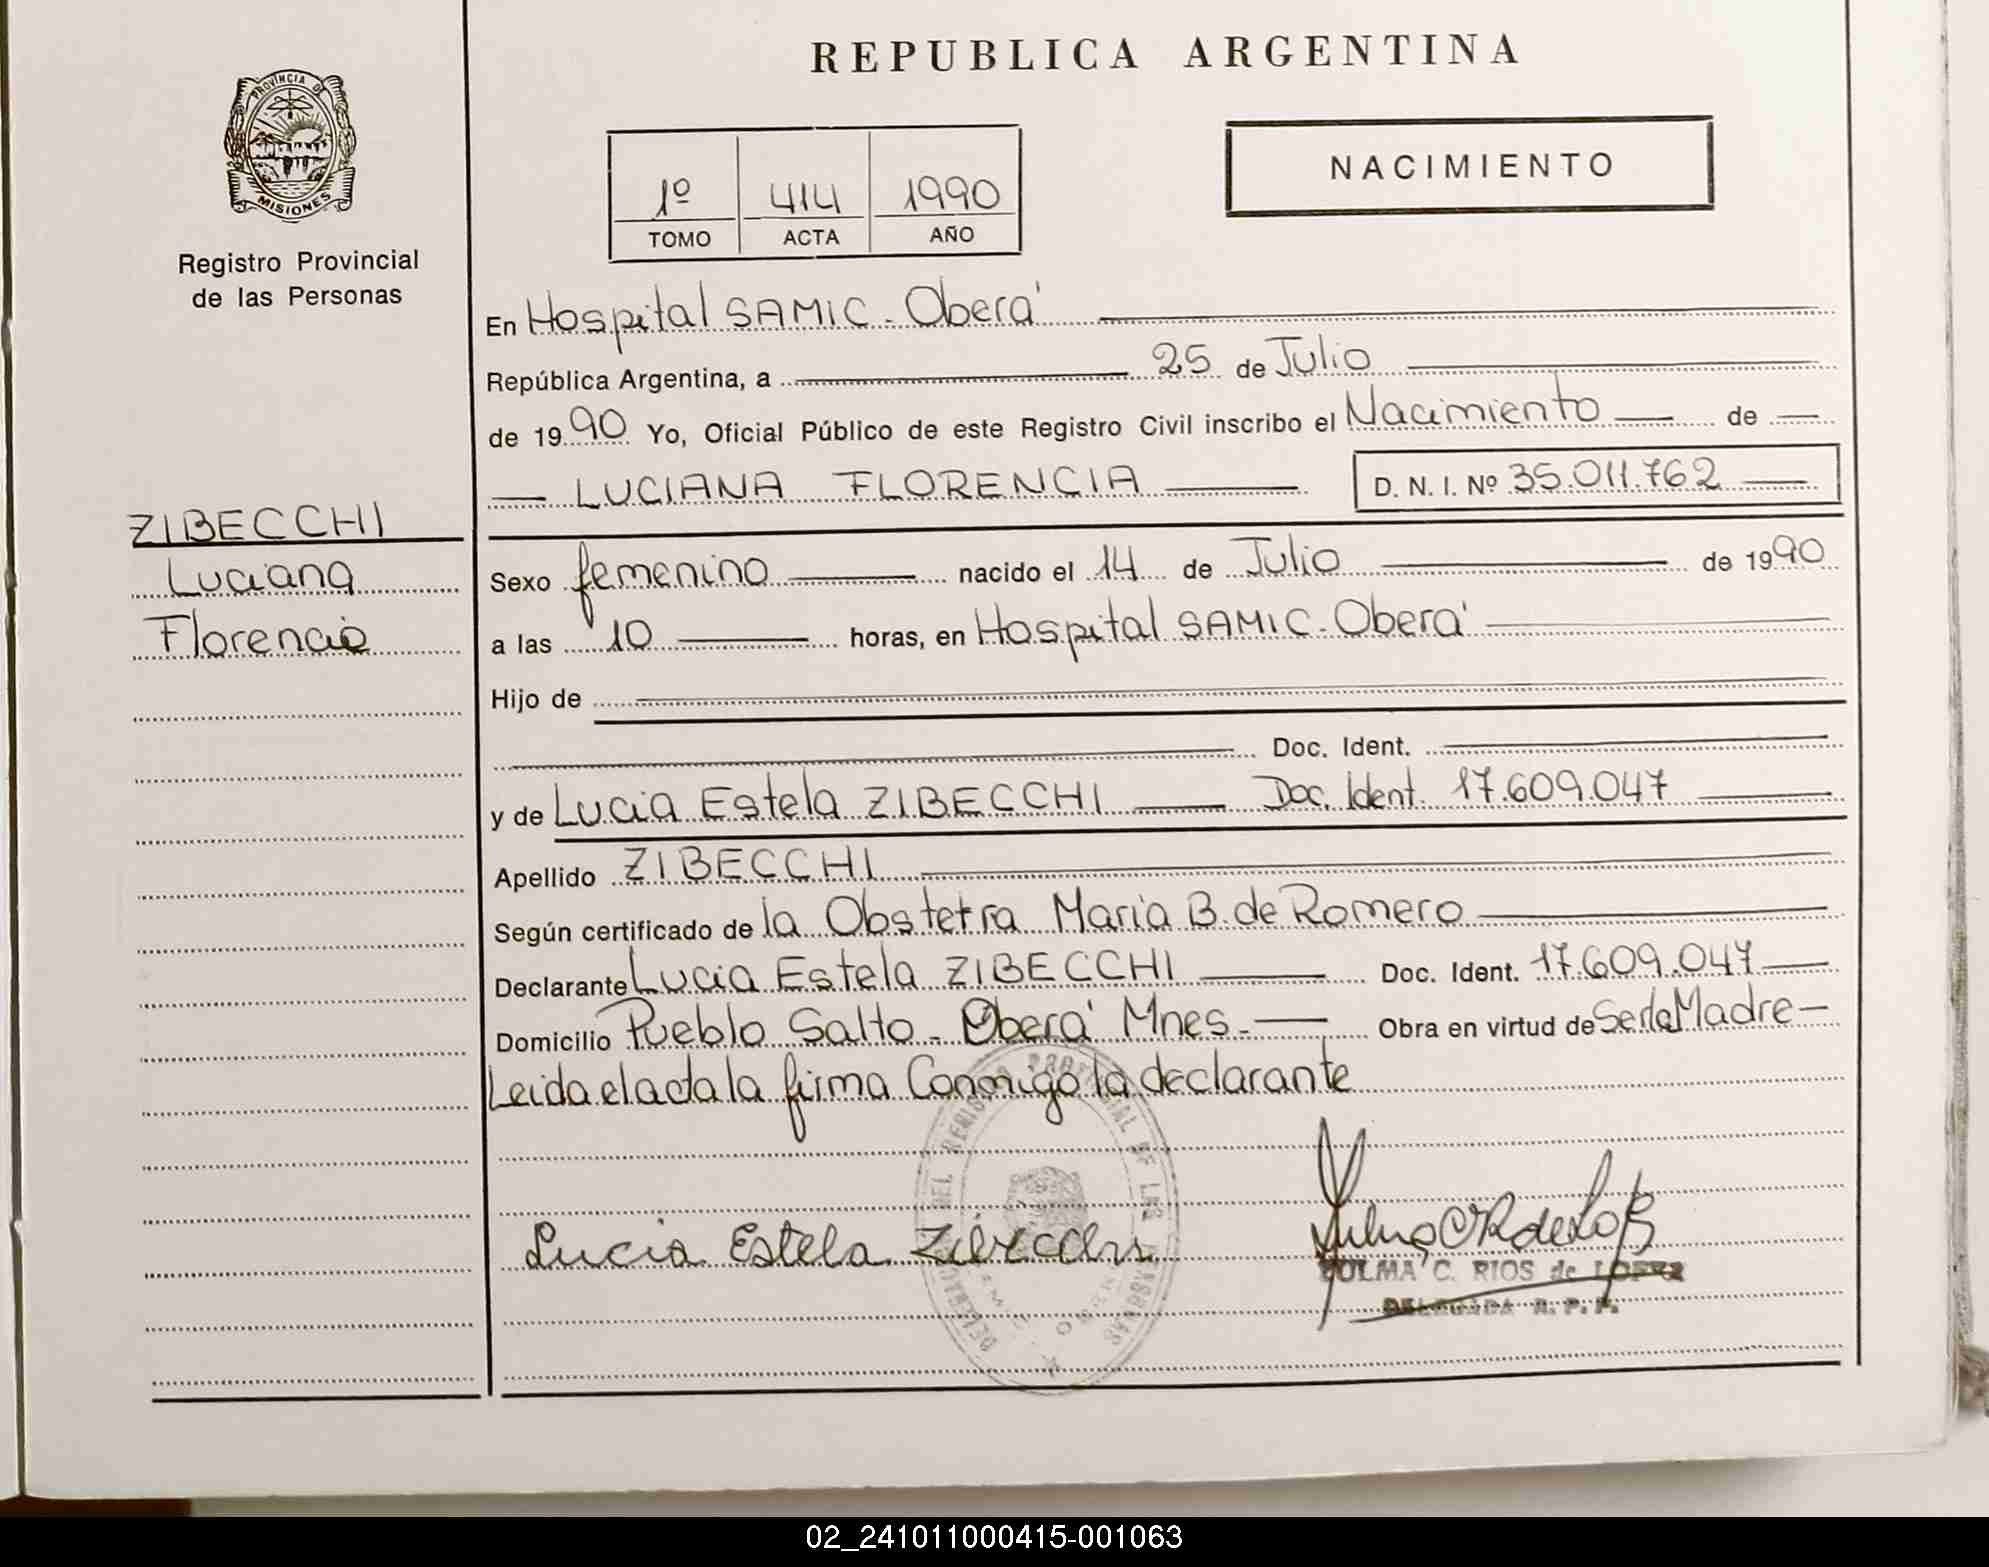 REPUBLICA ARGENTINA
PROVINCIA DE
MISIONES
Registro Provincial
de las Personas
1º 414 1990
TOMO ACTA AÑO
NACIMIENTO
En Hospital SAMIC - Oberá
República Argentina, a 25 de Julio
de 1990 Yo, Oficial Público de este Registro Civil inscribo el Nacimiento de
LUCIANA FLORENCIA D. N. I. Nº 35.011.762
ZIBECCHI
Luciana
Florencia
Sexo femenino nacido el 14 de Julio de 1990
a las 10 horas, en Hospital SAMIC - Oberá
Hijo de
Doc. Ident.
y de Lucia Estela ZIBECCHI Doc. Ident. 17.609.047
Apellido ZIBECCHI
Según certificado de la Obstetra Maria B. de Romero
Declarante Lucia Estela ZIBECCHI Doc. Ident. 17.609.047
Domicilio Pueblo Salto - Oberá Mnes.- Obra en virtud de Ser la Madre -
Leida el acta la firma Conmigo la declarante
REGISTRO PROVINCIAL DE LAS PERSONAS
Lucia Estela Zibecchi
C. RIOS de LOPEZ
DELEGADA R. P. P.
02_241011000415-001063